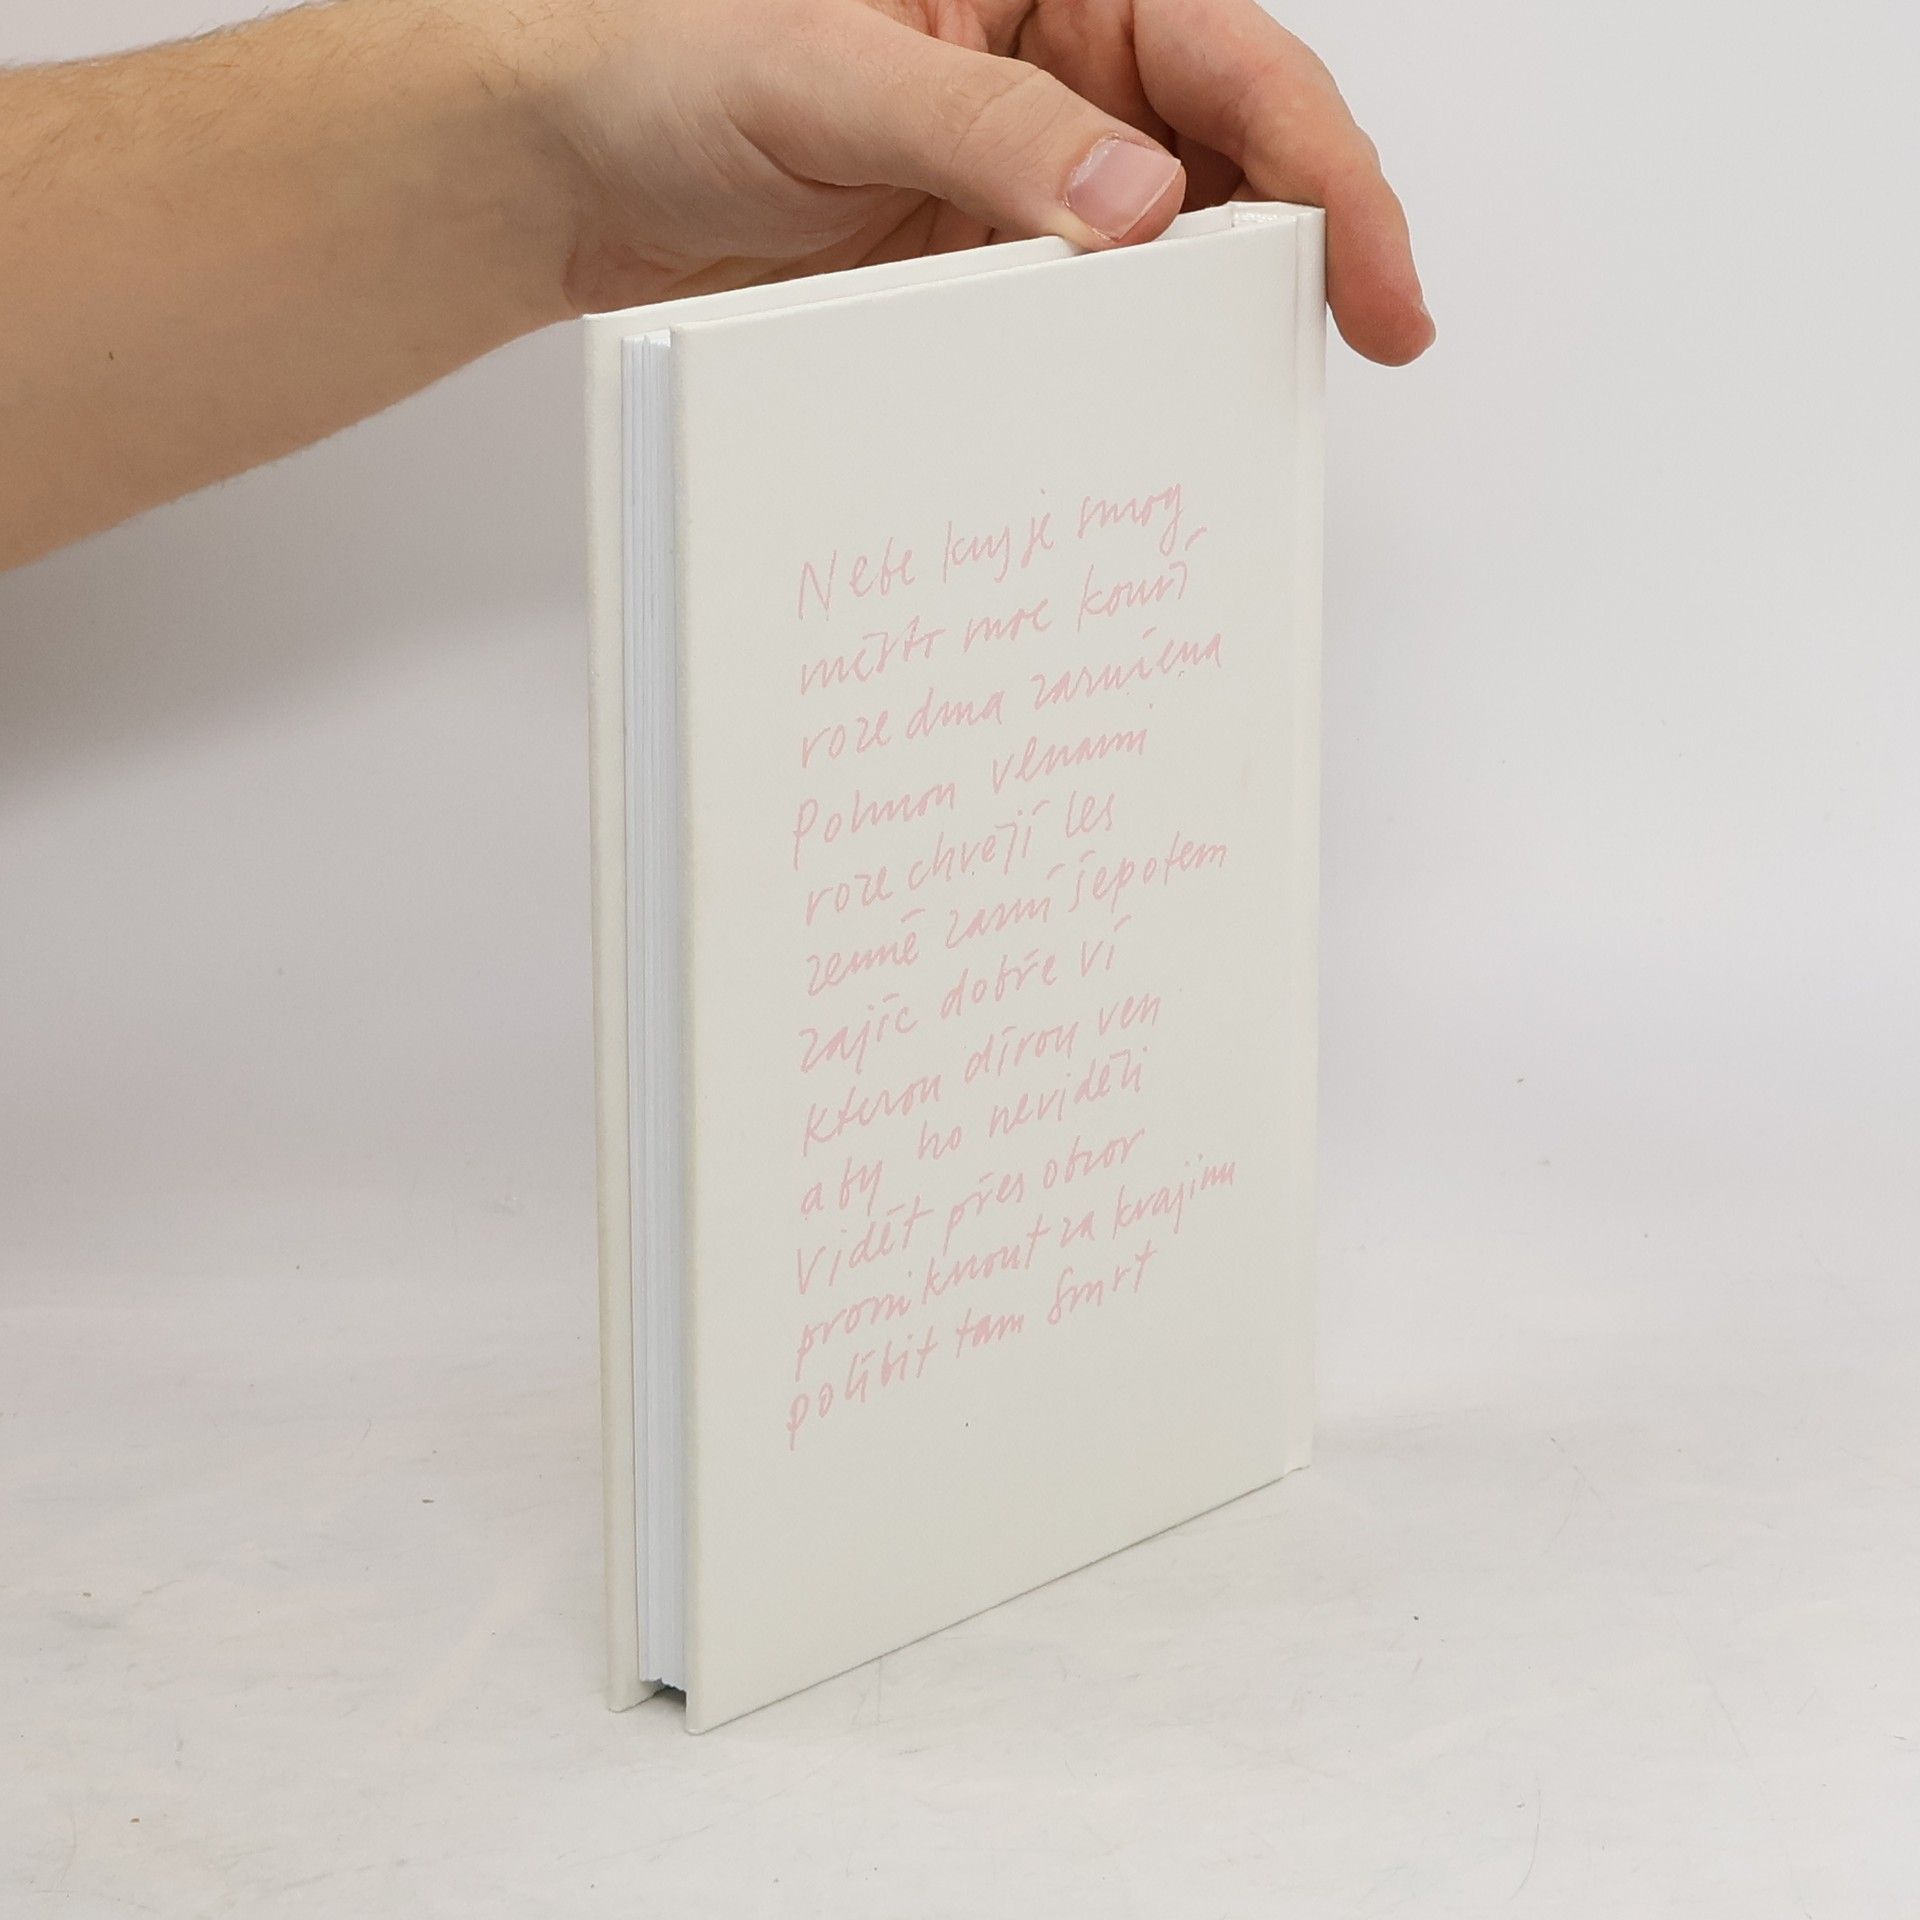 Nebe kryje smog
město mre kouří
rozedma zaručena
Pohnou vlnami
rozechvějí les
země zazní šepotem
zajíc dobře ví
kterou dírou ven
aby ho neviděli
vidět přes obzor
proniknout za krajinu
políbit tam smrt